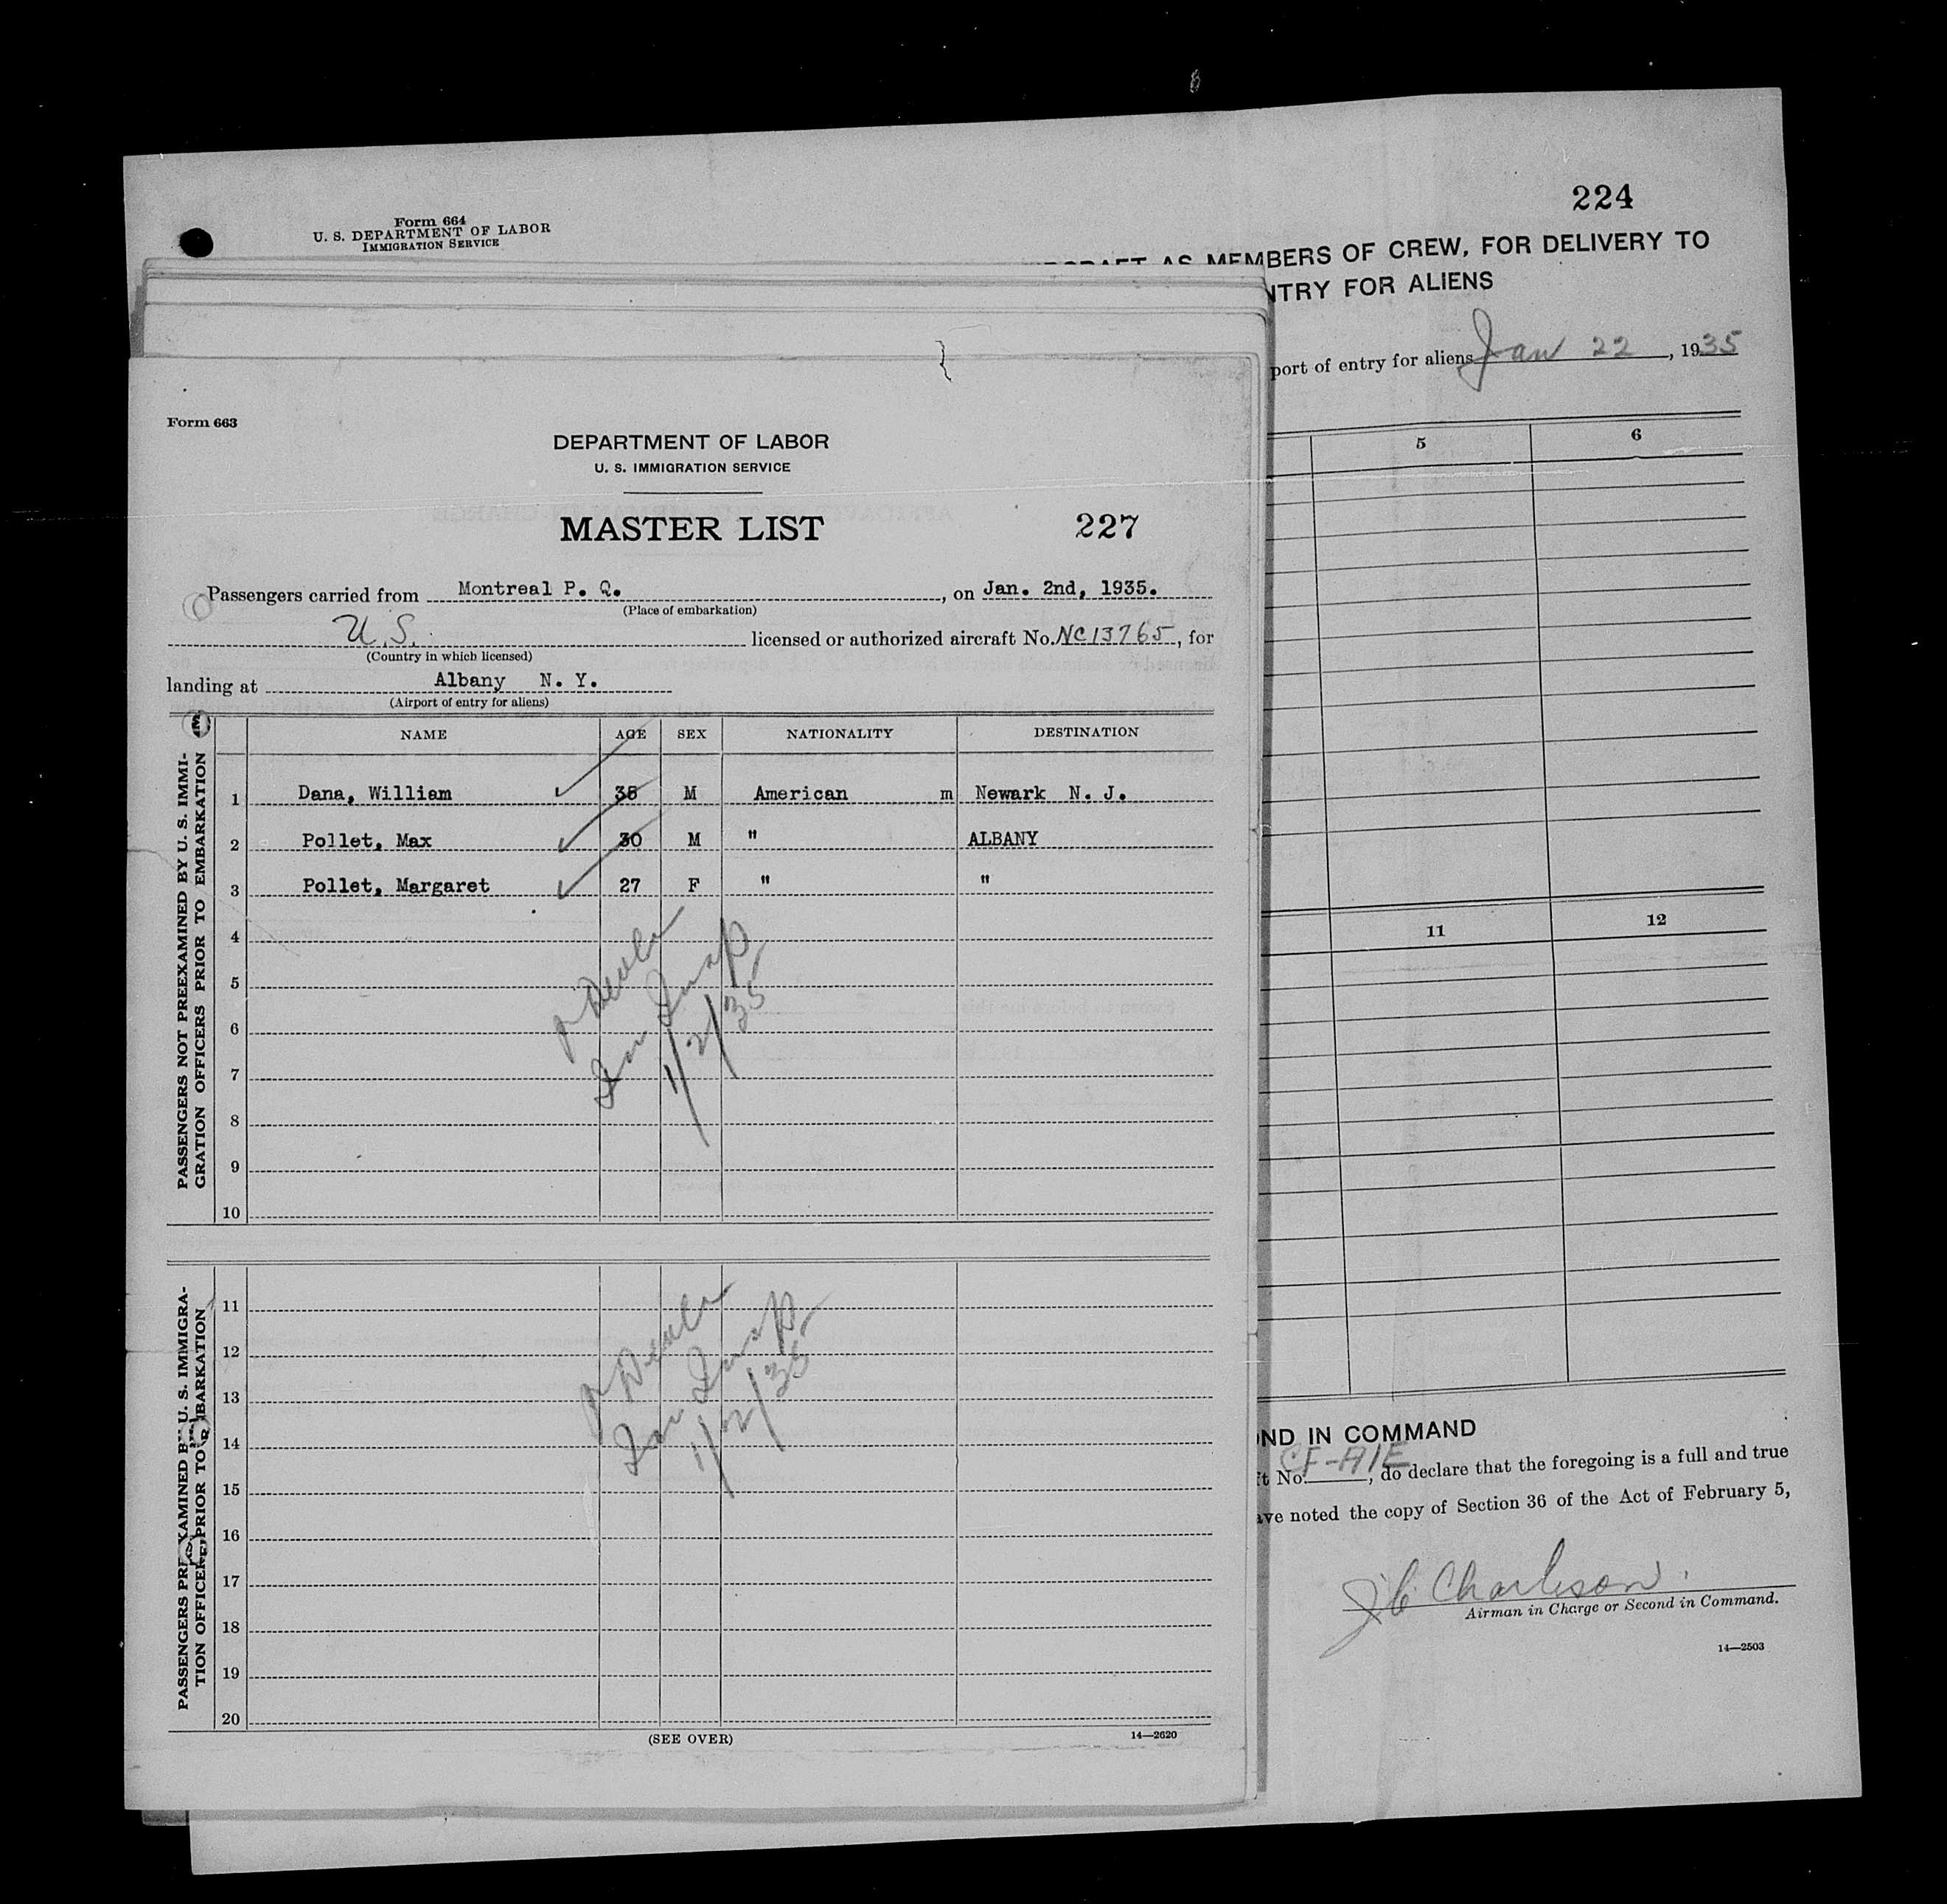 224
Form 664
U. S. DEPARTMENT OF LABOR
IMMIGRATION SERVICE
AS MEMBERS OF CREW, FOR DELIVERY TO
NTRY FOR ALIENS
port of entry for aliens Jan 22, 1935
5 6
11 12
ND IN COMMAND
t No. CF-AIE, do declare that the foregoing is a full and true
ave noted the copy of Section 36 of the Act of February 5,
J C Charleson.
Airman in Charge or Second in Command.
14—2503
Form 663
DEPARTMENT OF LABOR
U. S. IMMIGRATION SERVICE
MASTER LIST 227
Passengers carried from Montreal P. Q., on Jan. 2nd, 1935.
(Place of embarkation)
U.S. licensed or authorized aircraft No. NC13765, for
(Country in which licensed)
landing at Albany N. Y.
(Airport of entry for aliens)
PASSENGERS NOT PREEXAMINED BY U. S. IMMI-
GRATION OFFICERS PRIOR TO EMBARKATION
NAME AGE SEX NATIONALITY DESTINATION
1 Dana, William 35 M American m Newark N. J.
2 Pollet, Max 30 M " ALBANY
3 Pollet, Margaret 27 F " "
4
5
6
7
8
9
10
Imm Insp
1/2/35
PASSENGERS PREEXAMINED BY U. S. IMMIGRA-
TION OFFICERS PRIOR TO EMBARKATION
11
12
13
14
15
16
17
18
19
20
Imm Insp
1/2/35
(SEE OVER) 14—2620